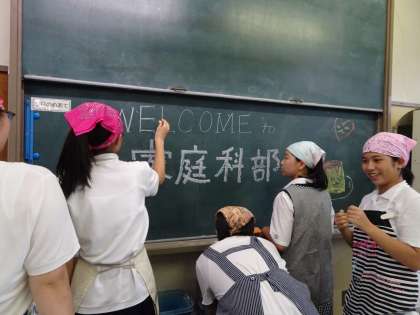 WELCOME to
家庭科部